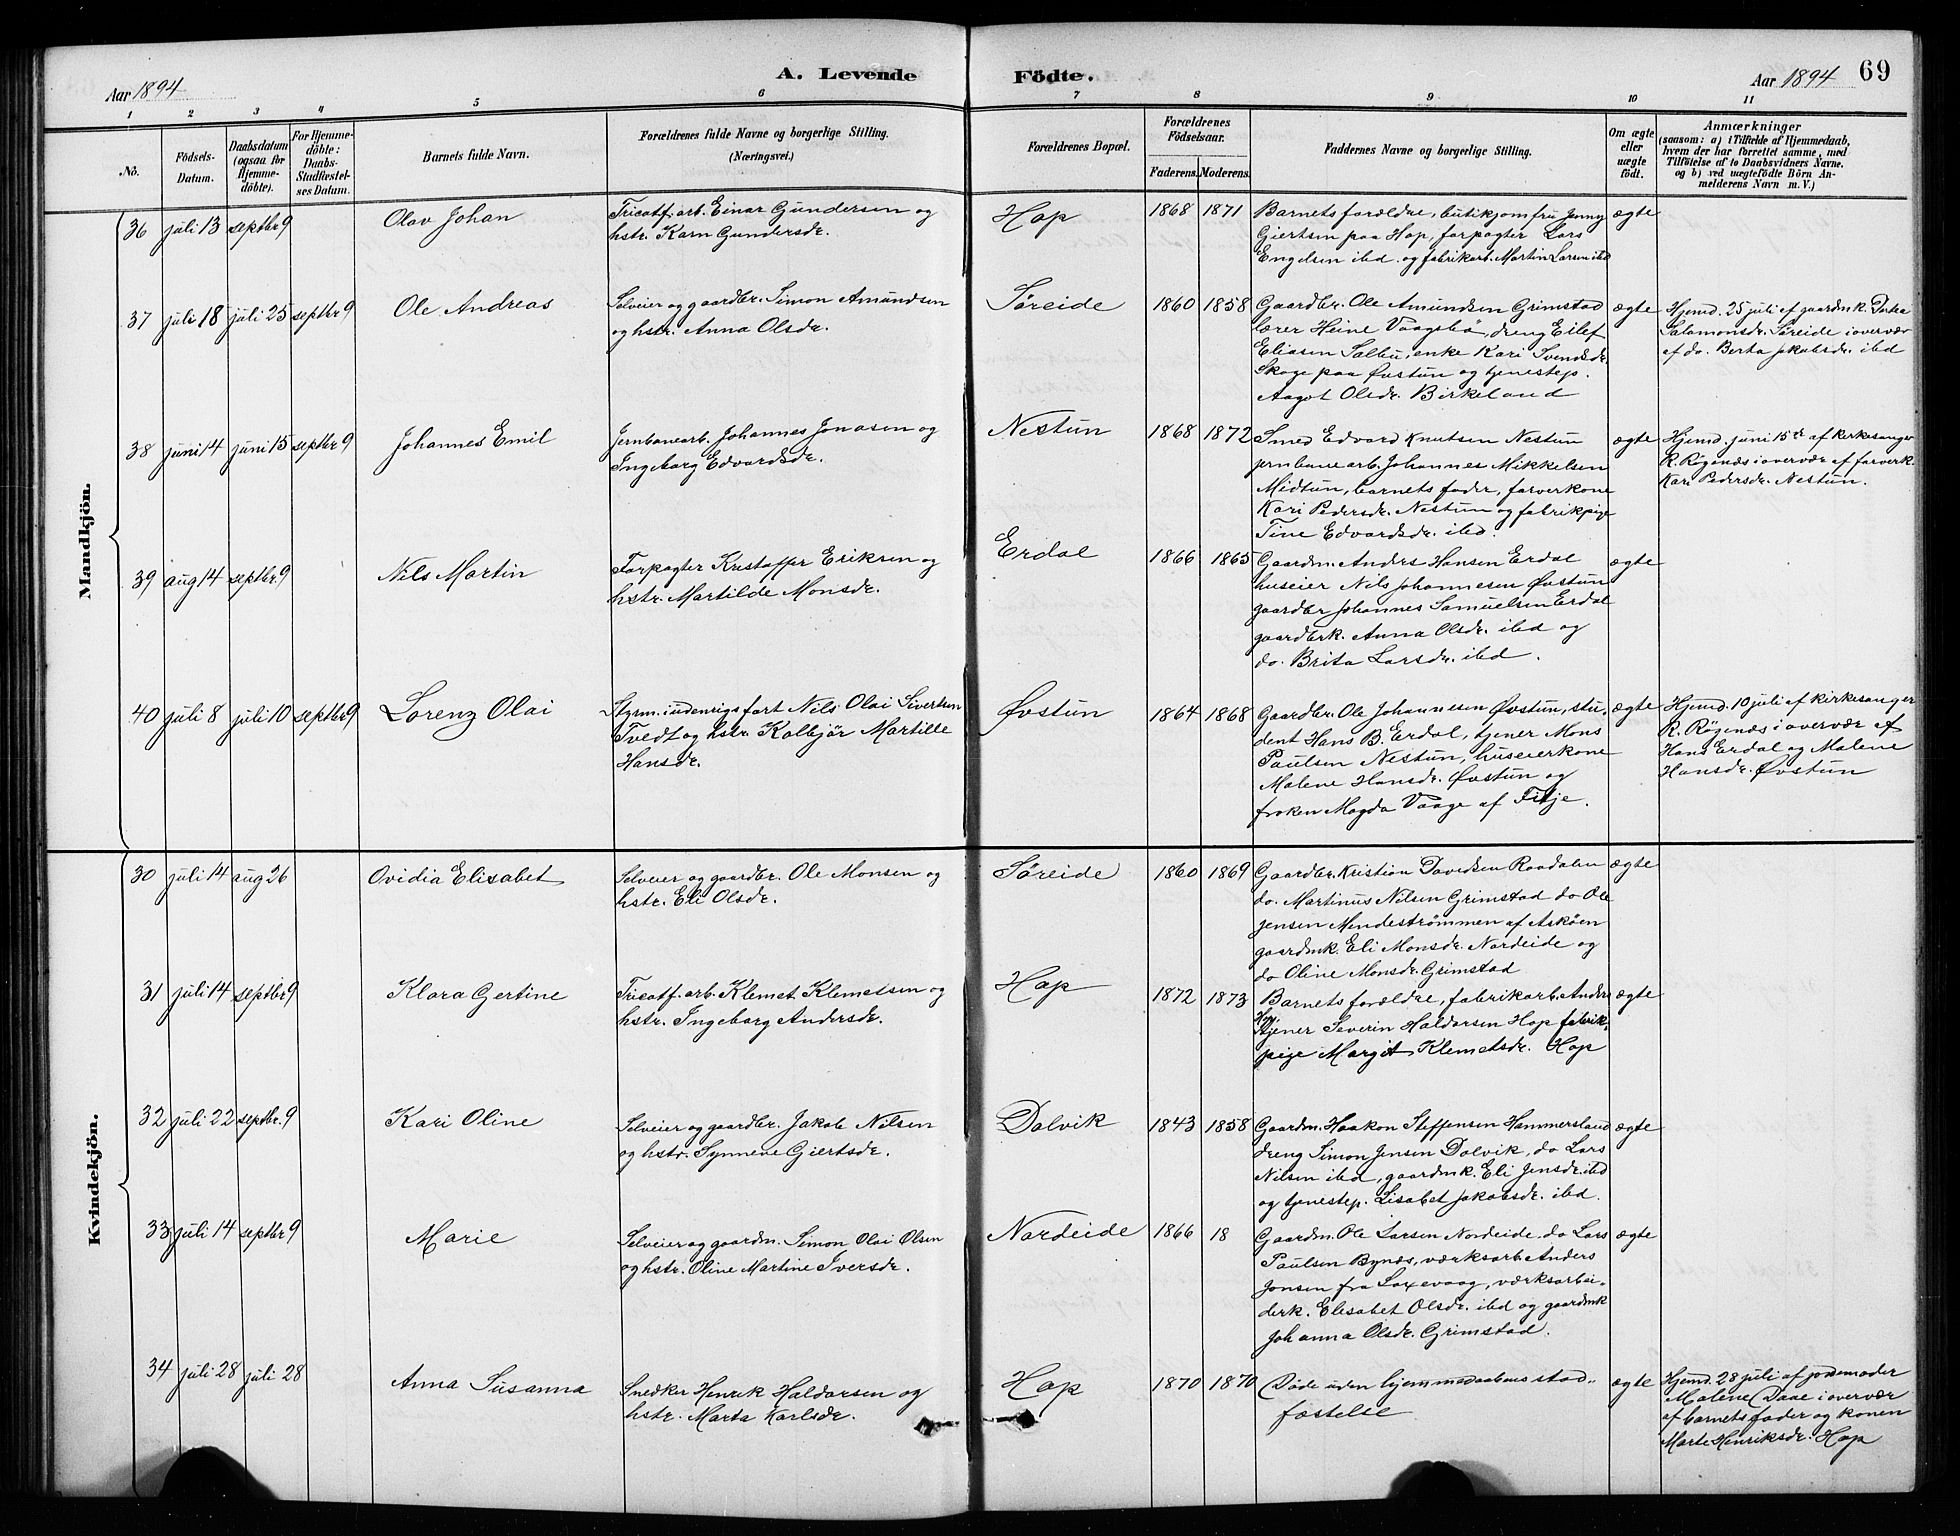 Aar 1894
A. Levende
Födte.
Aar 1894
69
1 2 3 4 5 6 7 8 9 10 11
No.
Födsels-
Datum.
Daabsdatum
(ogsaa for
Hjemme-
döbte).
For Hjemme-
döbte:
Daabs-
Stadfæstel-
ses Datum.
Barnets fulde Navn.
Forældrenes fulde Navne og borgerlige Stilling.
(Næringsvei.)
Forældrenes Bopæl.
Forældrenes
Födselsaar.
Faderens. Moderens.
Faddernes Navne og borgerlige Stilling.
Om ægte
eller
uægte
födt.
Anmærkninger
(saasom: a) i Tilfælde af Hjemmedaab,
hvem der har forrettet samme, med
Tilföielse af to Daabsvidners Navne.
og b) ved uægtefödte Börn An-
melderens Navn m. V.)
Mandkjön.
36 juli 13 septbr 9
Olav Johan
Tricotf. arb. Einar Gundersen og
hstr. Karn Gundersdr.
Hop
1868 1871
Barnets forældre, butikjomfru Jenny
Giertsen paa Hop, forpagter Lars
Engelsen ibd. og fabrikarb. Martin Larsen ibd
ægte
37 juli 18 juli 25 septbr 9
Ole Andreas
Selveier og gaardbr. Simon Amundsen
og hstr. Anna Olsdr.
Søreide
1860 1858
Gaardbr. Ole Amundsen Grimstad
lærer Heine Vaagsbö, dreng Eilef
Eliasen Sælbu, enke Kari Svendsdr.
Skoge paa Øvstun og tjenestep.
Aagot Olsdr. Birkeland
ægte
Hjemd. 25 juli af gaardmk.
Salamonsdr. Søreide i overvær
af do. Berta Jakobsdr. ibd
38 juni 14 juni 15 septbr 9
Johannes Emil
Jernbanearb. Johannes Jonasen og
Ingeborg Edvardsdr.
Nestun
1868 1872
Smed Edvard Knutsen Nestun
jernbanearb. Johannes Mikkelsen
Midtun, barnets fader, farverkone
Kari Pedersdr. Nestun og fabrikpige
Tine Edvardsdr. ibd.
ægte
Hjemd. juni 15de af kirkesanger
R. Røgenæs i overvær af farverk.
Kari Pedersdr. Nestun.
39 aug 14 septbr 9
Nils Martin
Forpagter Kristoffer Eriksen og
hstr. Martilde Monsdr.
Erdal
1866 1865
Gaardm. Anders Hansen Erdal
huseier Nils Johannesen Øvstun
gaardbr Johannes Samuelsen Erdal
gaardbrk. Anna Olsdr. ibd og
do. Brita Larsdr. ibd.
ægte
40 juli 8 juli 10 septbr 9
Lorenz Olai
Styrm. i udenrigsfart Nils Olai Sivertsen
Tvedt og hstr. Kolbjör Martille
Hansdr.
Øvstun
1864 1868
Gaardbr. Ole Johannesen Øvstun, stu-
dent Hans B. Erdal, tjener Mons
Paulsen Nestun, huseierkone
Malene Hansdr. Øvstun og
frøken Magda Vaage af Fitje.
ægte
Hjemd. 10 juli af kirkesanger
R. Røgenæs i overvær af
Hans Erdal og Malene
Hansdr. Øvstun
Kvindekjön.
30 juli 14 aug 26
Ovidia Elisabet
Selveier og gaardbr. Ole Monsen og
hstr. Eli Olsdr.
Søreide
1860 1869
Gaardbr. Kristian Davidsen Raadalen
do. Martinus Nilsen Grimstad do Ole
Jensen Mendeströmmen af Askøen
gaardmk. Eli Monsdr. Nordeide og
do Oline Monsdr. Grimstad
ægte
31 juli 14 septbr 9
Klara Gertine
Tricotf. arb. Klemet Klemetsen og
hstr. Ingeborg Andersdr.
Hop
1872 1873
Barnets forældre, fabrikarb. Anders
Hop,
tjener Severin Haldorsen Hop fabrik-
pige Margit Klemetsdr. Hop
ægte
32 juli 22 septbr. 9
Kari Oline
Selveier og gaardbr. Jakob Nilsen
og hstr. Synneve Giertsdr.
Dolvik
1843 1858
Gaardm. Haakon Steffensen Hammersland
dreng Simon Jensen Dolvik, do Lars
Nilsen ibd, gaardmk. Eli Jensdr. ibd
og tjenestep. Lisabet Jakobsdr. ibd.
ægte
33 juli 14 septbr 9
Marie
Selveier og gaardm. Simon Olai Olsen
og hstr. Oline Martine Iversdr.
Nordeide
1866 18
Gaardm. Ole Larsen Nordeide do Lars
Paulsen Bynæs, værksarb. Anders
Jonsen fra Laxevaag, værksarbei-
derk. Elisabet Olsdr. ibd og gaardmk
Johanna Olsdr. Grimstad.
ægte
34 juli 28 juli 28
Anna Susanna
Snedker Henrik Haldorsen og
hstr. Marta Karlsdr.
Hop
1870 1870
Döde uden hjemmedaabens stad-
fæstelse
ægte
Hjemd. 28 juli af jordemoder
Malene Daae i overvær
af barnets fader og konen
Marte Henriksdr. Hop